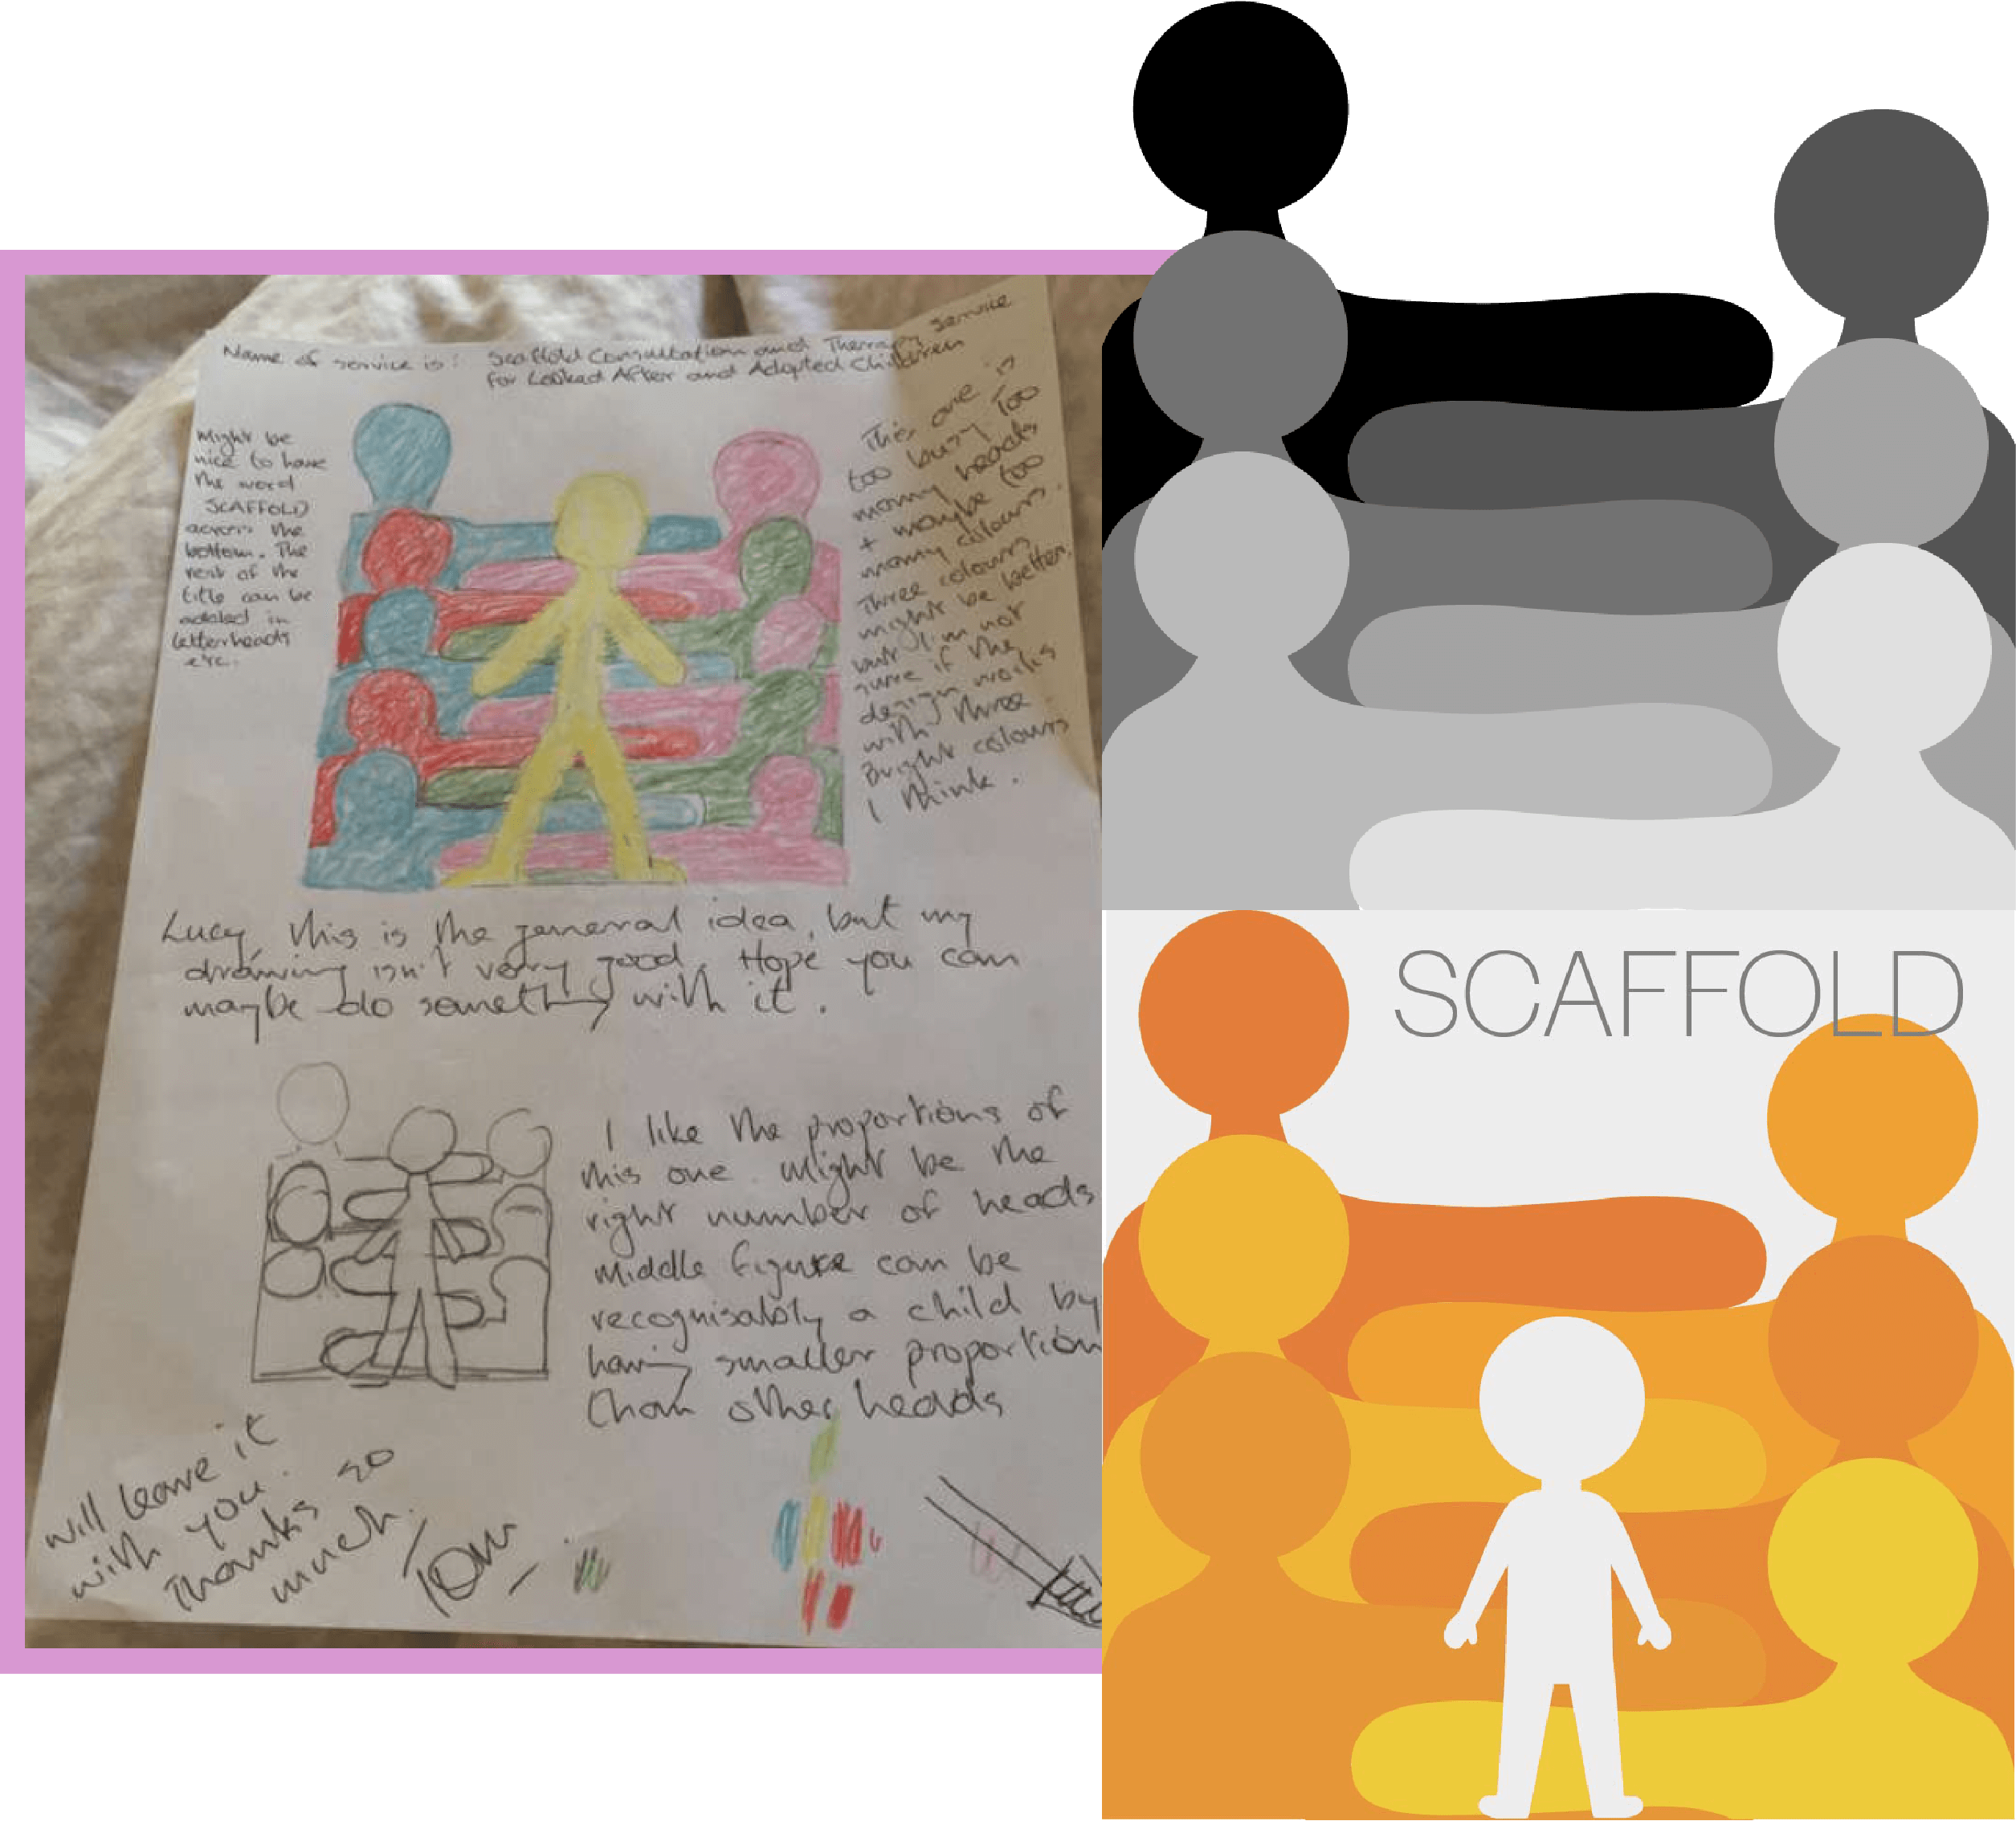 Name of service is: Scaffold Consultation and Therapy Service
for Looked After and Adopted Children
Might be
nice to have
the word
SCAFFOLD
across the
bottom. The
rest of the
title can be
added in
letterheads
etc.
This one is
too busy. Too
many heads
+ maybe too
many colours.
Three colours
might be better,
but I'm not
sure if the
design works
with three.
Bright colours
I think.
Lucy, this is the general idea, but my
drawing isn't very good. Hope you can
maybe do something with it.
I like the proportions of
this one. Might be the
right number of heads
middle figure can be
recognisably a child by
having smaller proportion
than other heads
will leave it
with you.
Thanks so
much.
SCAFFOLD